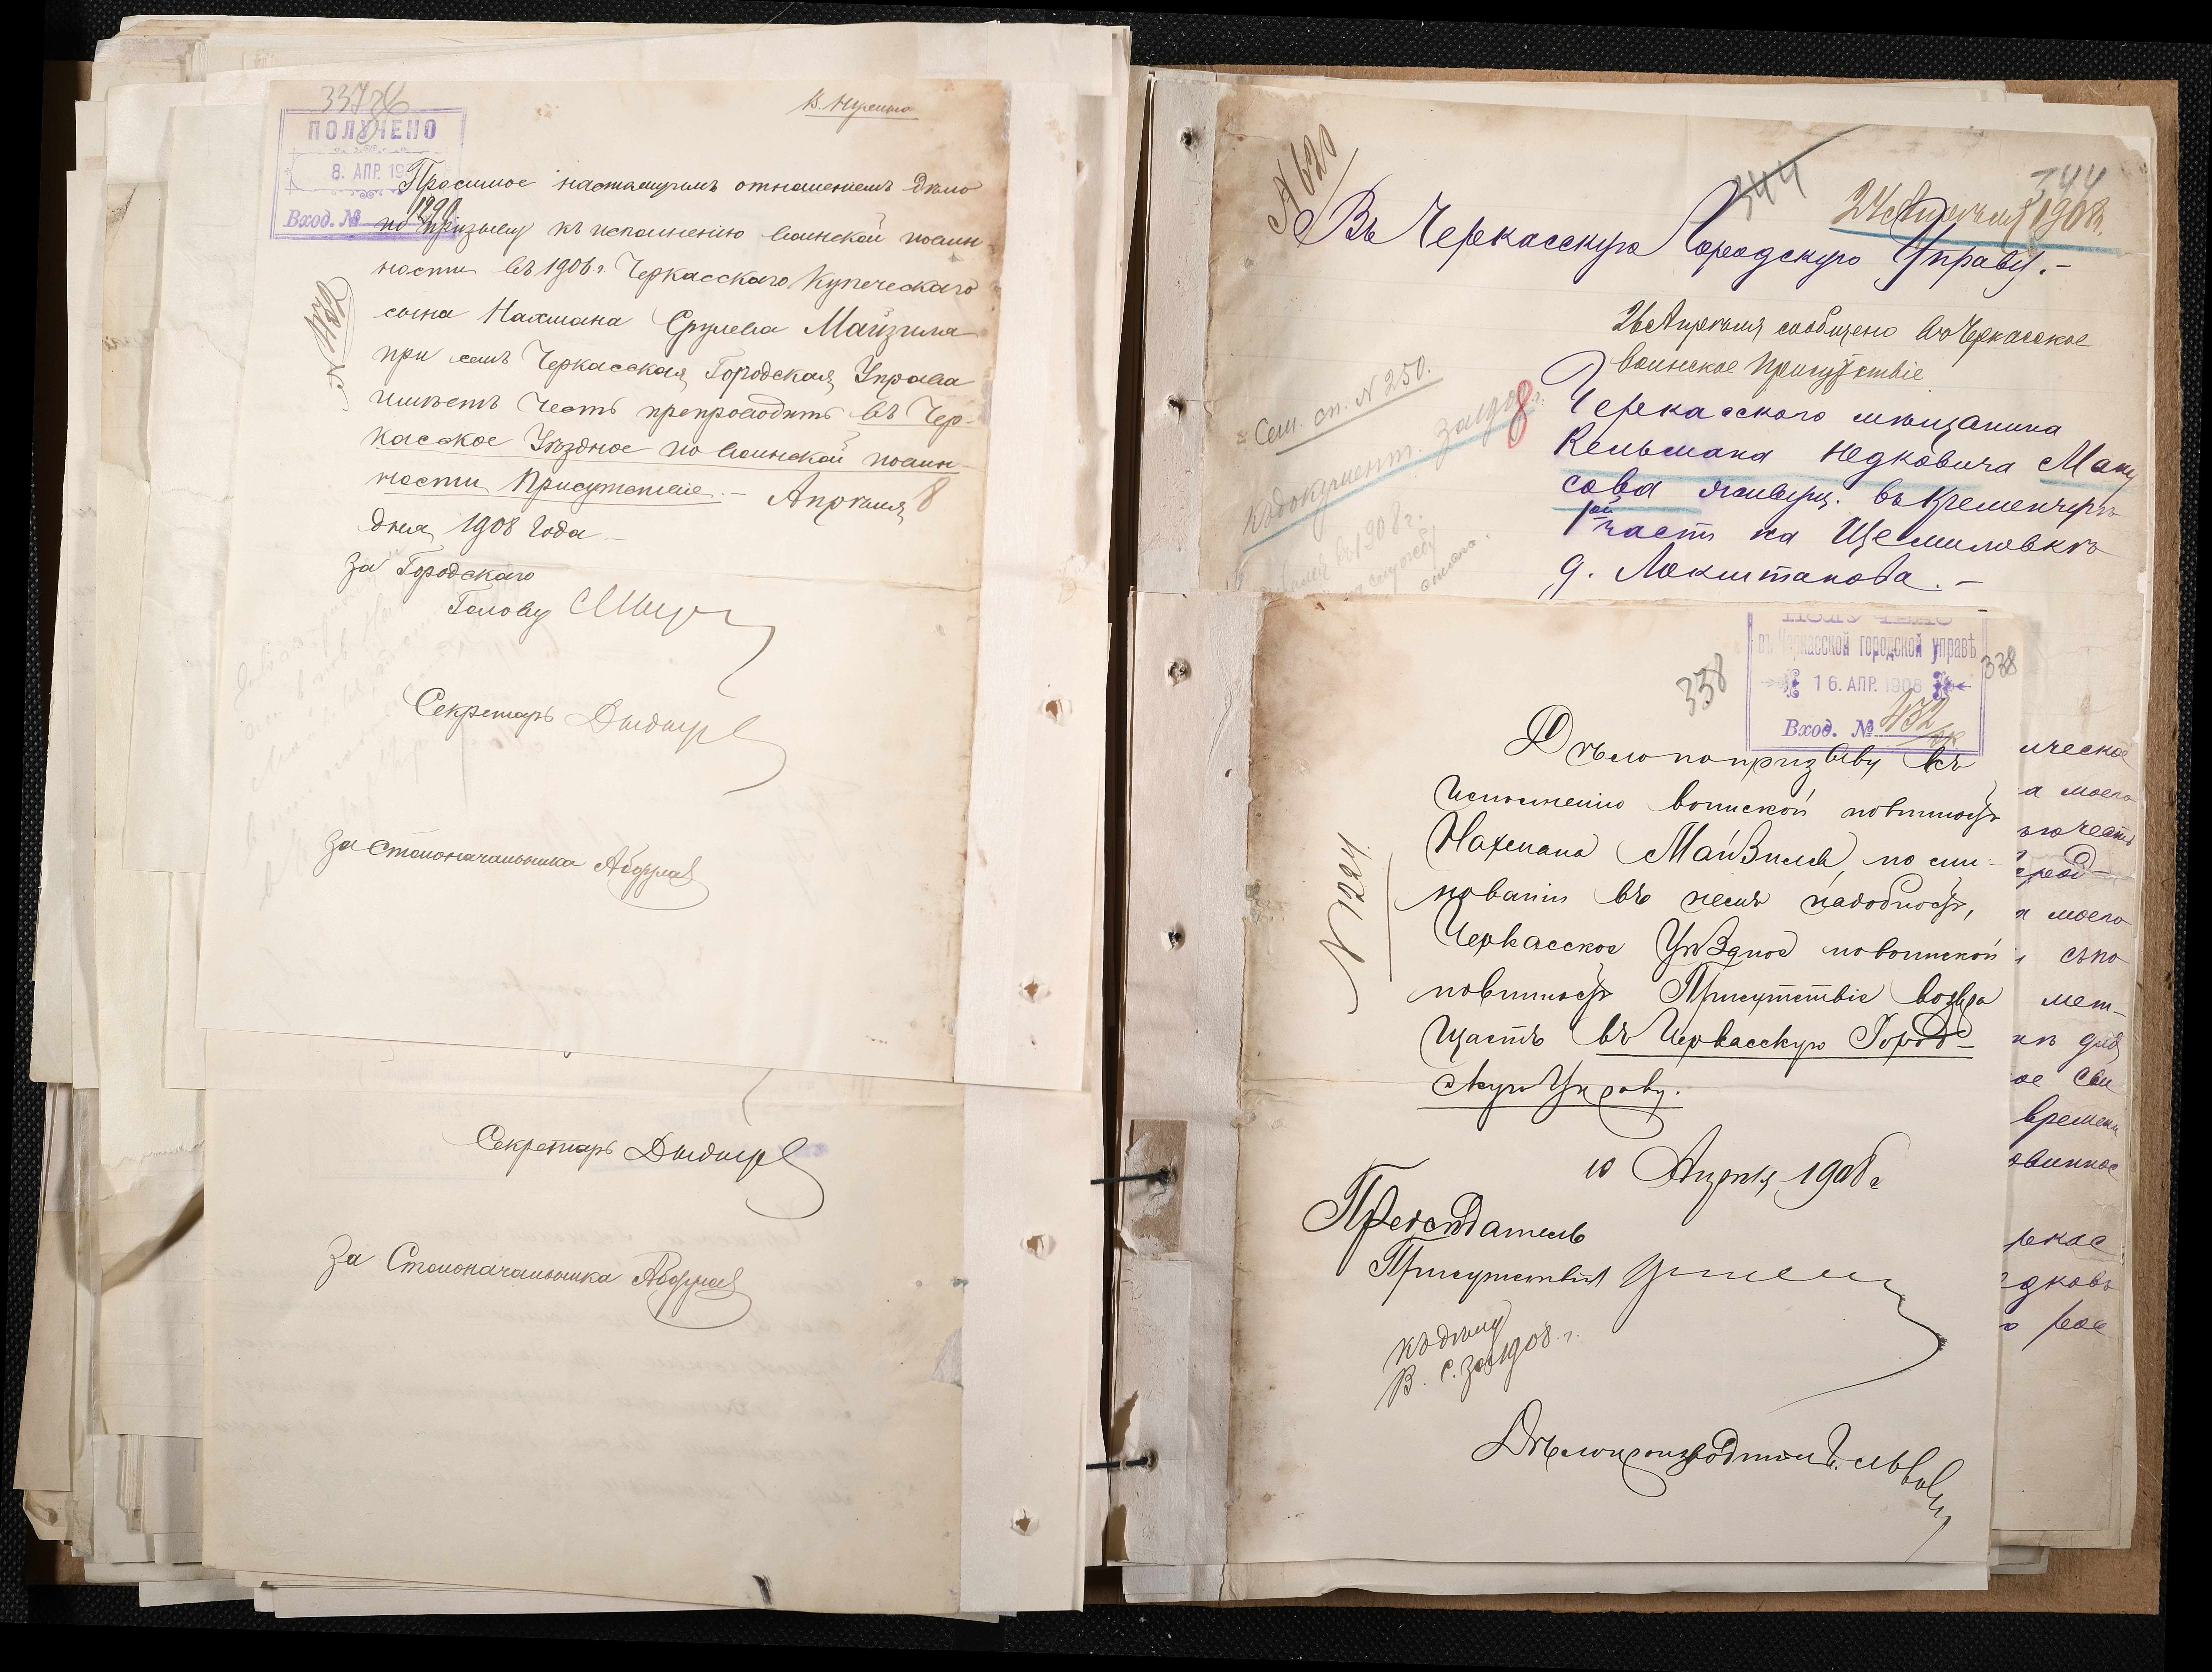 В. нужно
ПОЛУЧЕНО
8. АПР. 19
Вход. № 1290
Просимое настоящимъ отношенiемъ дѣло
по призыву къ исполненію воинской повин-
ности въ 1906 г. Черкасскаго купеческаго
сына Нахмана Срулева Майзиля
при семъ Черкасская Городская Управа
имѣетъ честь препроводить въ Чер-
касское Уѣздное по воинской повин-
ности Присутствіе.- Апрѣля 8
дня 1908 года
За Городского
Голову
Секретарь
За Столоначальника
Секретарь
За Столоначальника
N 620
344
344
24 Апрѣля 1908 г.
Въ Черкасскую Городскую Управу.-
26 Апрѣля сообщено въ Черкасское
воинское присутствіе
Сем. сп. N 250.
Къ документ. за 1908 г.
Черкасского мѣщанина
Кельмана Недковича Маку
сова живущ. въ Кременчугѣ
1ой части на Щемиловкѣ
д. Локштанова.-
338
ПОЛУЧЕНО
въ Черкасской городской управѣ
338
16. АПР. 1908
Вход. № 432
Дѣло по призыву къ
исполненію воинской повинности
Нахмана Майзиля, по ми-
нованіи въ немъ надобности,
Черкасское Уѣздное по воинской
повинности Присутствіе возвра
щаетъ въ Черкасскую Город-
скую Управу.
N 1224
10 Апрѣля 1908 г.
Предсѣдатель
Присутствія
къ дѣлу
В. С. за 1908 г.
Дѣлопроизводитель
ическое
а моего
а моего
съпо
мет-
ое сви
времени